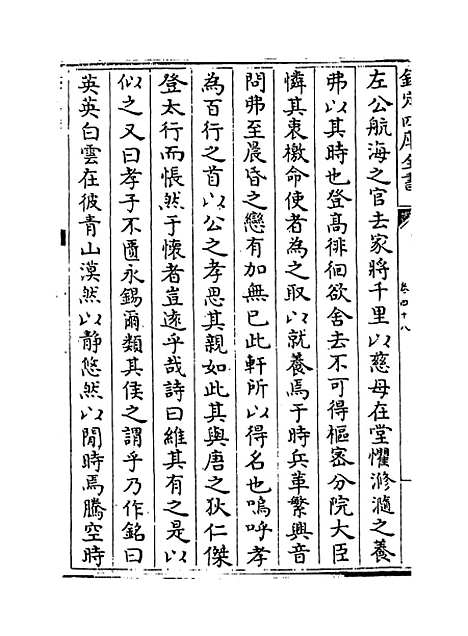 欽定四庫全書
卷四十八
左公航海之官去家將千里以慈母在堂懼滫瀡之養
弗以其時也登高徘徊欲舍去不可得樞密分院大臣
憐其衷檄命使者為之取以就養焉于時兵革繁興音
問弗至晨昏之戀有加無已此軒所以得名也嗚呼孝
為百行之首以公之孝思其親如此其與唐之狄仁傑
登太行而悵然于懷者豈遠乎哉詩曰維其有之是以
似之又曰孝子不匱永錫爾類其侯之謂乎乃作銘曰
英英白雲在彼青山漠然以静悠然以閒時焉騰空時